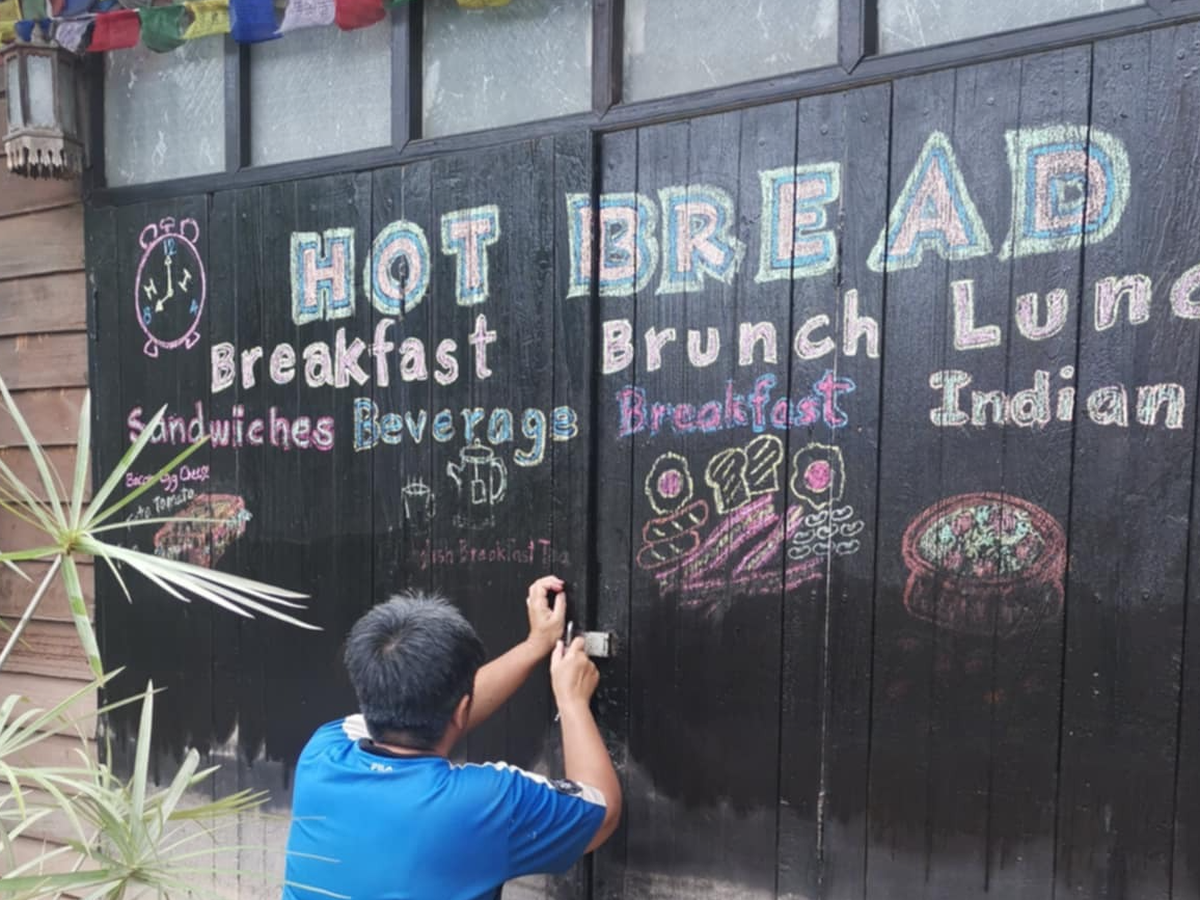 HOT BREAD
Breakfast Brunch Lunc
Sandwiches Beverage Breakfast Indian
Bacon Egg Cheese
Tomato
English Breakfast Tea
12
8
4
FILA